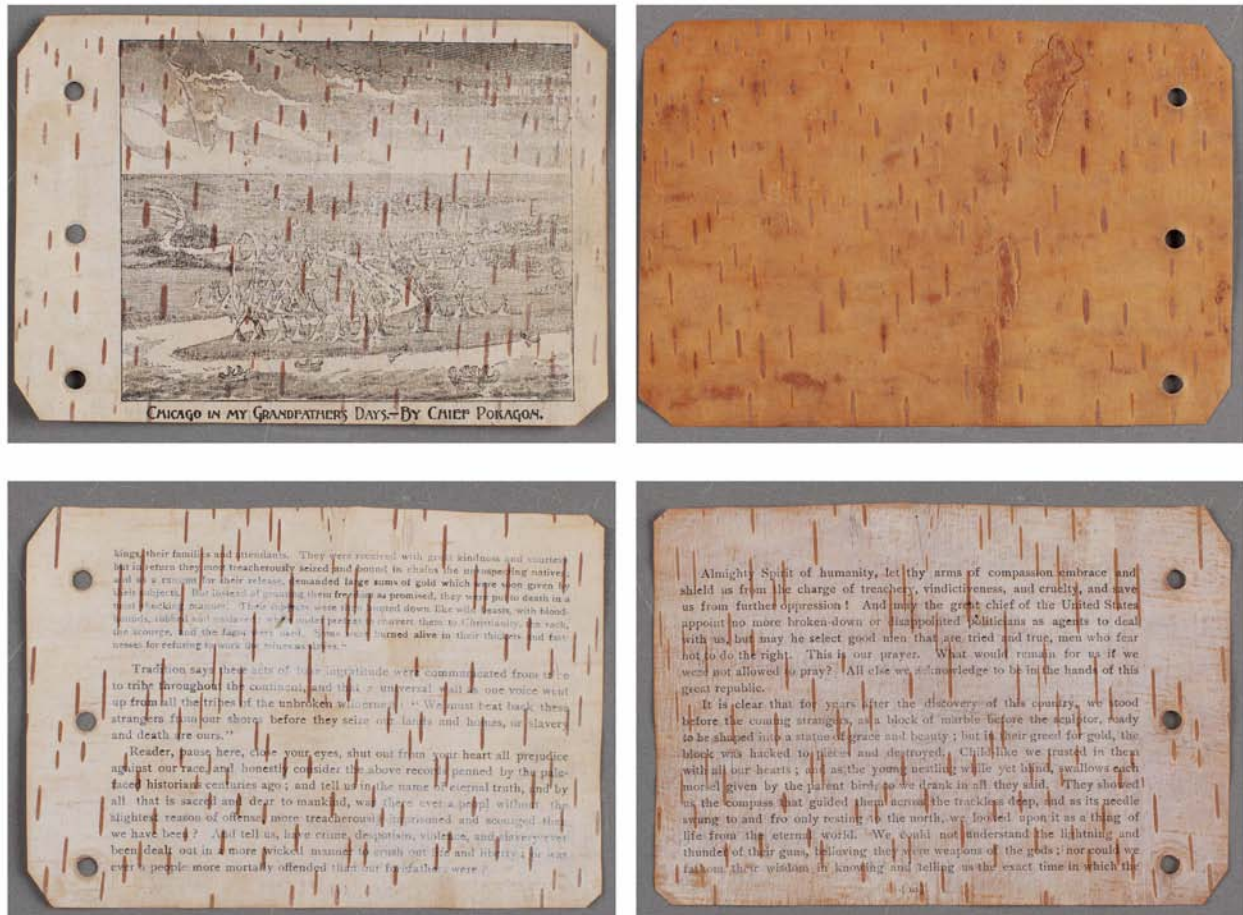 CHICAGO IN MY GRANDFATHER'S DAYS.—BY CHIEF POKAGON.
kings, their families and attendants. They were received with great kindness and courtesy,
but in return they most treacherously seized and bound in chains the unsuspecting natives;
and as a ransom for their release, demanded large sums of gold which were soon given by
their subjects. But instead of granting them freedom as promised, they were put to death in a
most shocking manner. Their subjects were then hunted down like wild beasts, with blood-
hounds, robbed and enslaved; while under pretext to convert them to Christianity, the rack,
the scourge, and the fagot were used. Some were burned alive in their thickets and fast-
nesses for refusing to work the mines as slaves."
Tradition says these acts of base ingratitude were communicated from tribe
to tribe throughout the continent, and that a universal wail as one voice went
up from all the tribes of the unbroken wilderness: "We must beat back these
strangers from our shores before they seize our lands and homes, or slavery
and death are ours."
Reader, pause here, close your eyes, shut out from your heart all prejudice
against our race, and honestly consider the above records penned by the pale-
faced historians centuries ago; and tell us in the name of eternal truth, and by
all that is sacred and dear to mankind, was there ever a people without the
slightest reason of offense, more treacherously imprisoned and scourged than
we have been? And tell us, have crime, despotism, violence, and slavery ever
been dealt out in a more wicked manner to crush out life and liberty; or was
ever a people more mortally offended than our forefathers were?
Almighty Spirit of humanity, let thy arms of compassion embrace and
shield us from the charge of treachery, vindictiveness, and cruelty, and save
us from further oppression! And may the great chief of the United States
appoint no more broken-down or disappointed politicians as agents to deal
with us, but may he select good men that are tried and true, men who fear
not to do the right. This is our prayer. What would remain for us if we
were not allowed to pray? All else we acknowledge to be in the hands of this
great republic.
It is clear that for years after the discovery of this country, we stood
before the coming strangers, as a block of marble before the sculptor, ready
to be shaped into a statue of grace and beauty; but in their greed for gold, the
block was hacked to pieces and destroyed. Child-like we trusted in them
with all our hearts; and as the young nestling while yet blind, swallows each
morsel given by the parent bird, so we drank in all they said. They showed
us the compass that guided them across the trackless deep, and as its needle
swung to and fro only resting to the north, we looked upon it as a thing of
life from the eternal world. We could not understand the lightning and
thunder of their guns, believing they were weapons of the gods; nor could we
fathom their wisdom in knowing and telling us the exact time in which the